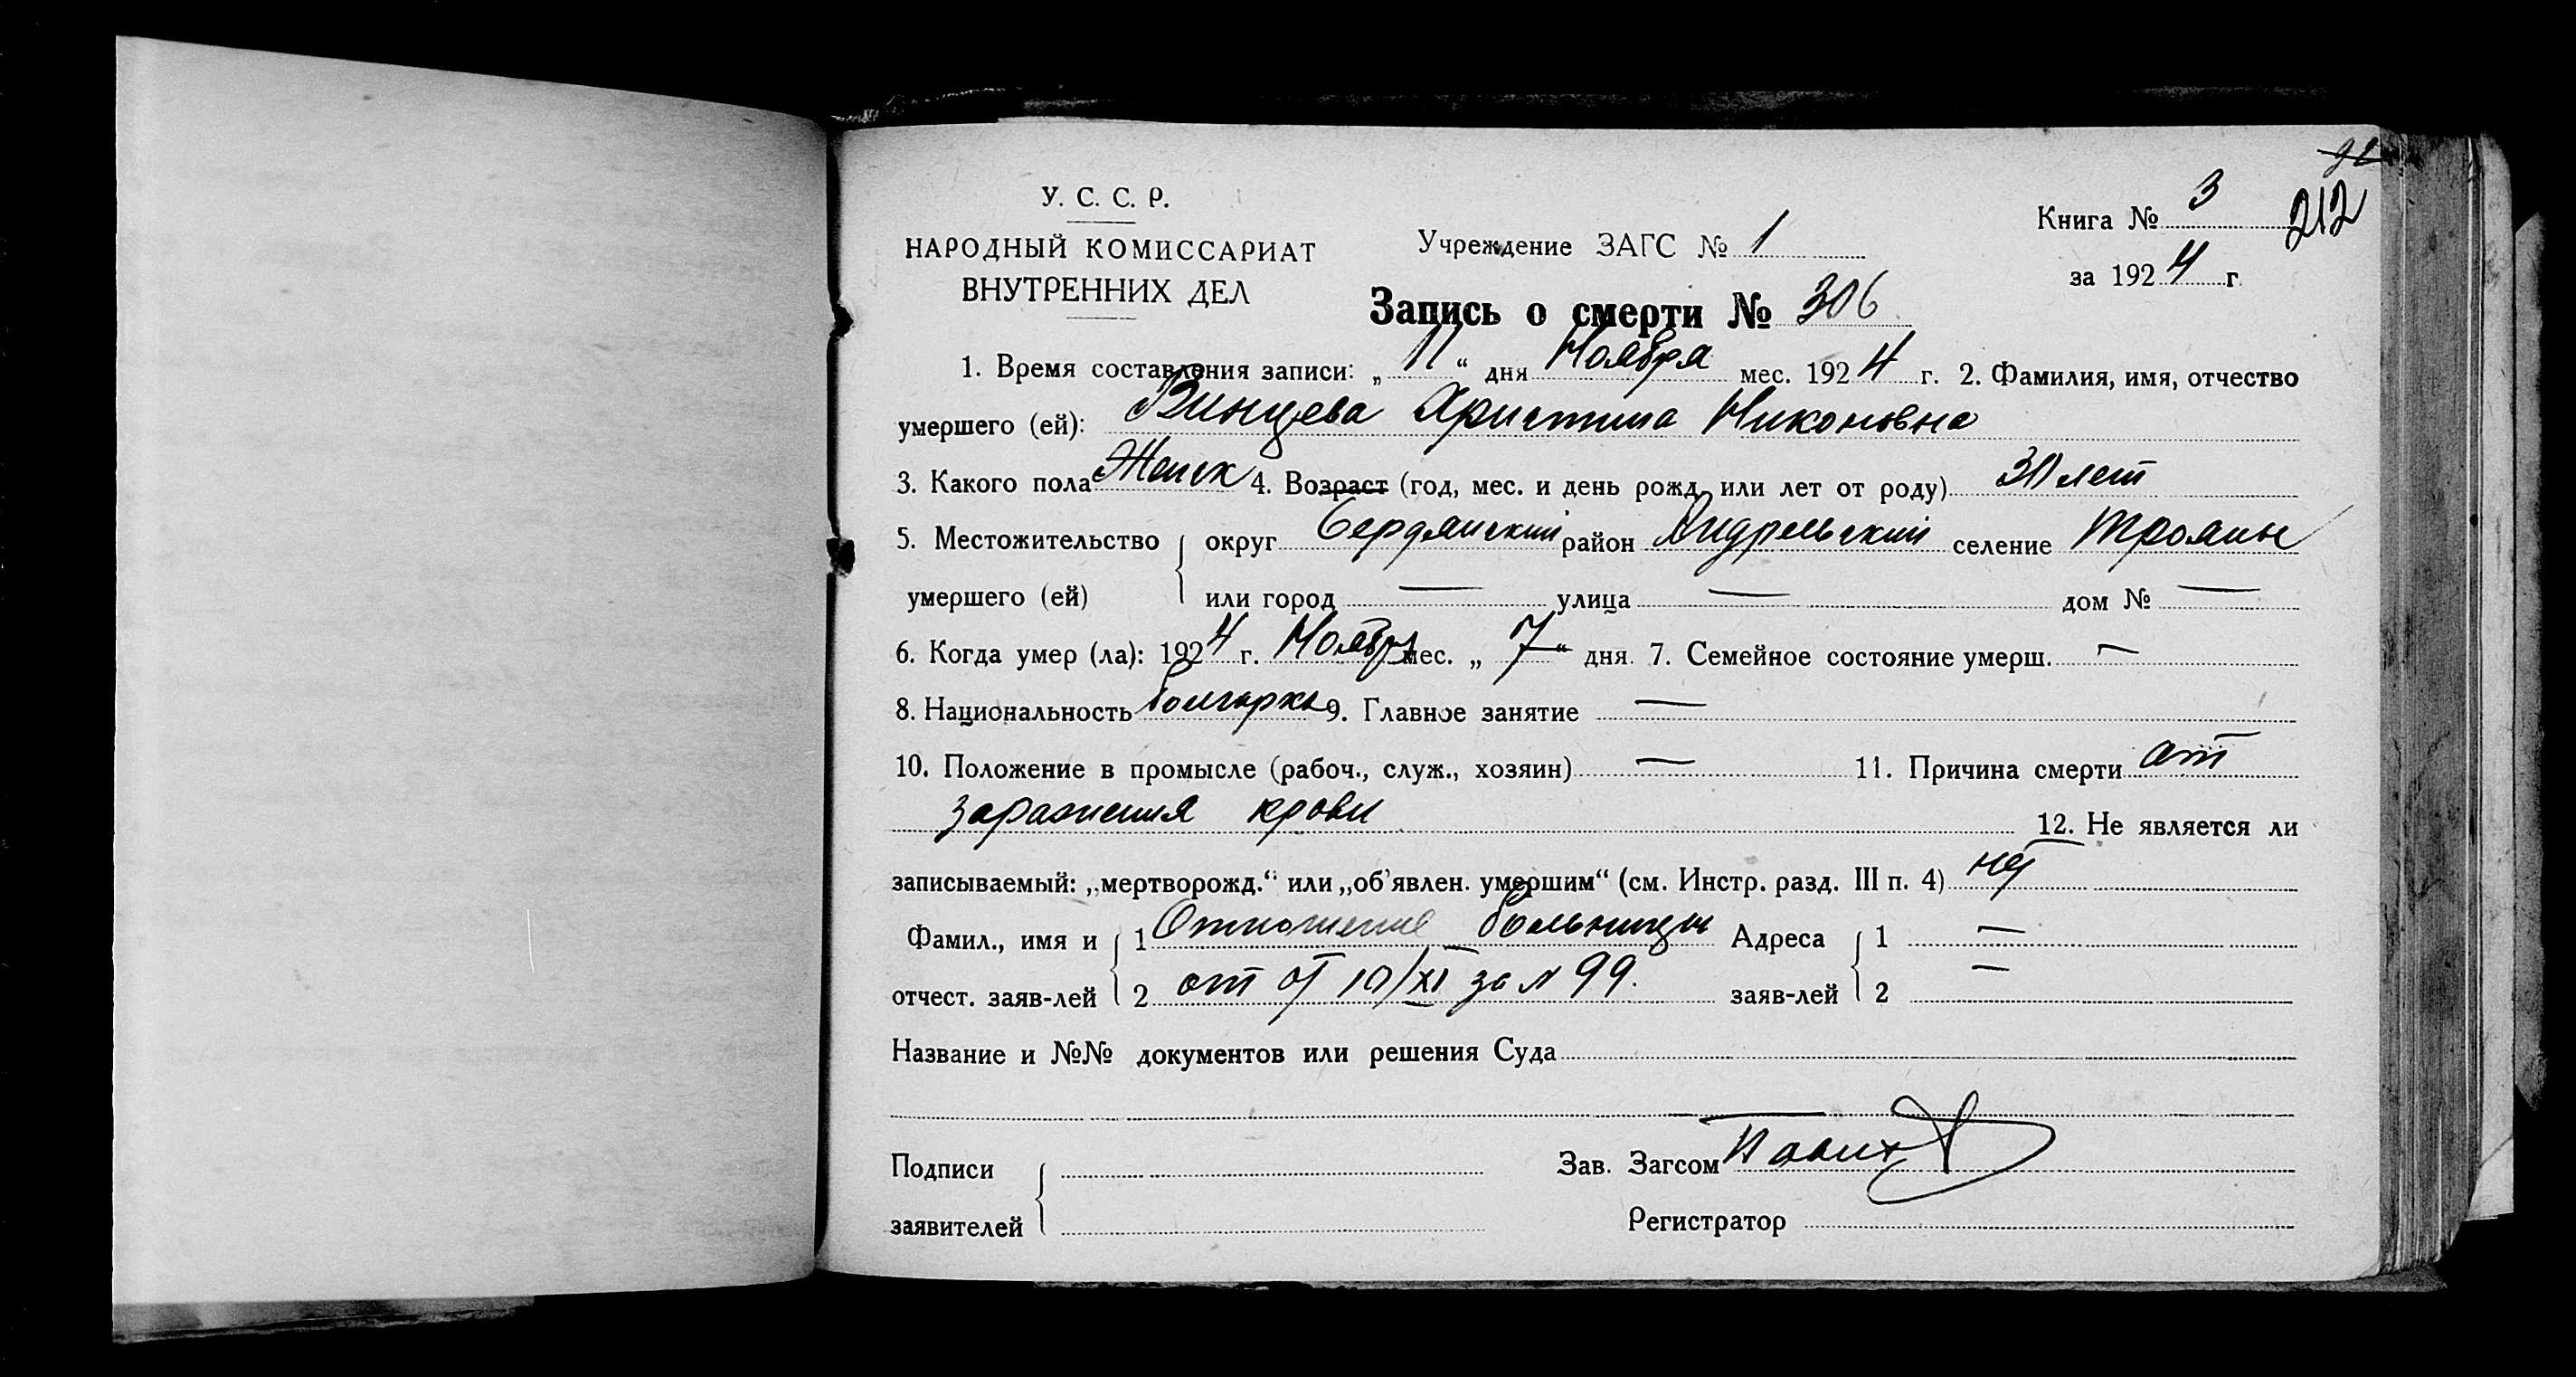 92
У. С. С. Р.
НАРОДНЫЙ КОМИССАРИАТ
ВНУТРЕННИХ ДЕЛ
Учреждение ЗАГС № 1
Книга № 3
212
за 1924 г.
Запись о смерти № 306
1. Время составления записи: „11“ дня Ноября мес. 1924 г. 2. Фамилия, имя, отчество
умершего (ей): Винцева Христина Никоновна
3. Какого пола Женск 4. Возраст (год, мес. и день рожд. или лет от роду) 30 лет
5. Местожительство округ Бердянский район Андреевский селение Трояны
умершего (ей) или город — улица — дом № —
6. Когда умер (ла): 1924 г. Ноябр мес. „7“ дня. 7. Семейное состояние умерш. —
8. Национальность болгарка 9. Главное занятие —
10. Положение в промысле (рабоч., служ., хозяин) — 11. Причина смерти от
заражения крови 12. Не является ли
записываемый: „мертворожд.“ или „об’явлен. умершим“ (см. Инстр. разд. III п. 4) нет
Фамил., имя и 1 Отношение больницы Адреса 1 —
отчест. заяв-лей 2 от от 10/XI за N 99. заяв-лей 2 —
Название и №№ документов или решения Суда
Подписи Зав. Загсом
заявителей Регистратор